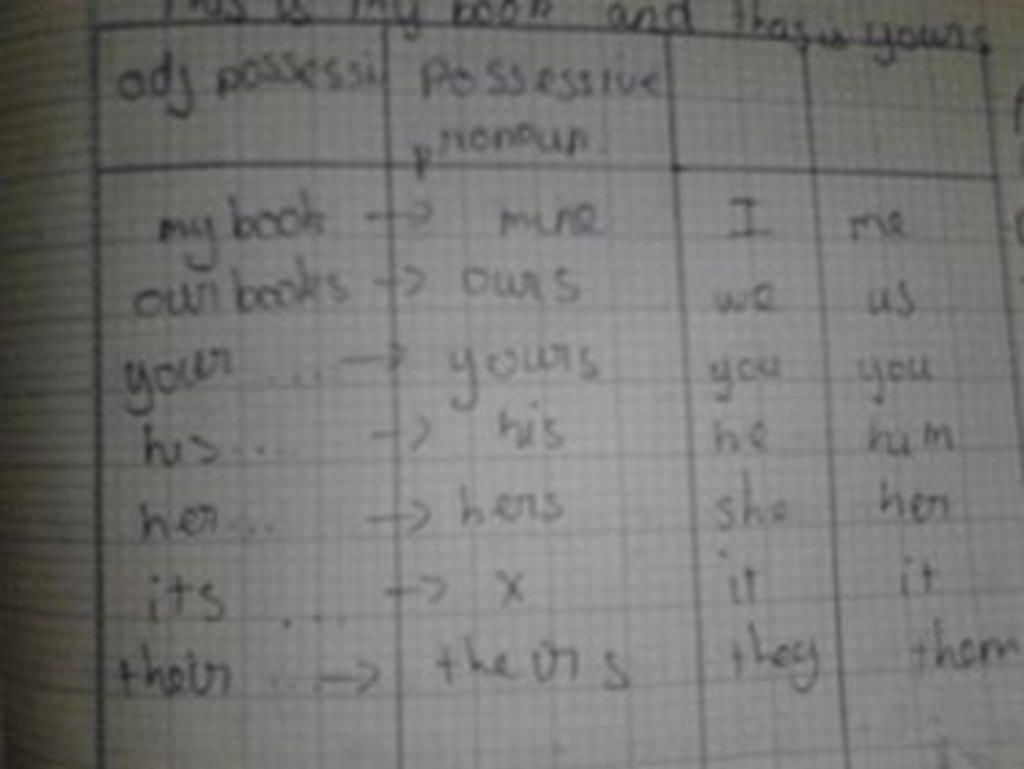 This is my book and that is yours
adj possessi possessive
pronoun
my book -> mine I me
our books -> ours we us
your .... -> yours you you
his ... -> his he him
her ... -> hers she her
its .... -> x it it
their ... -> theirs they them